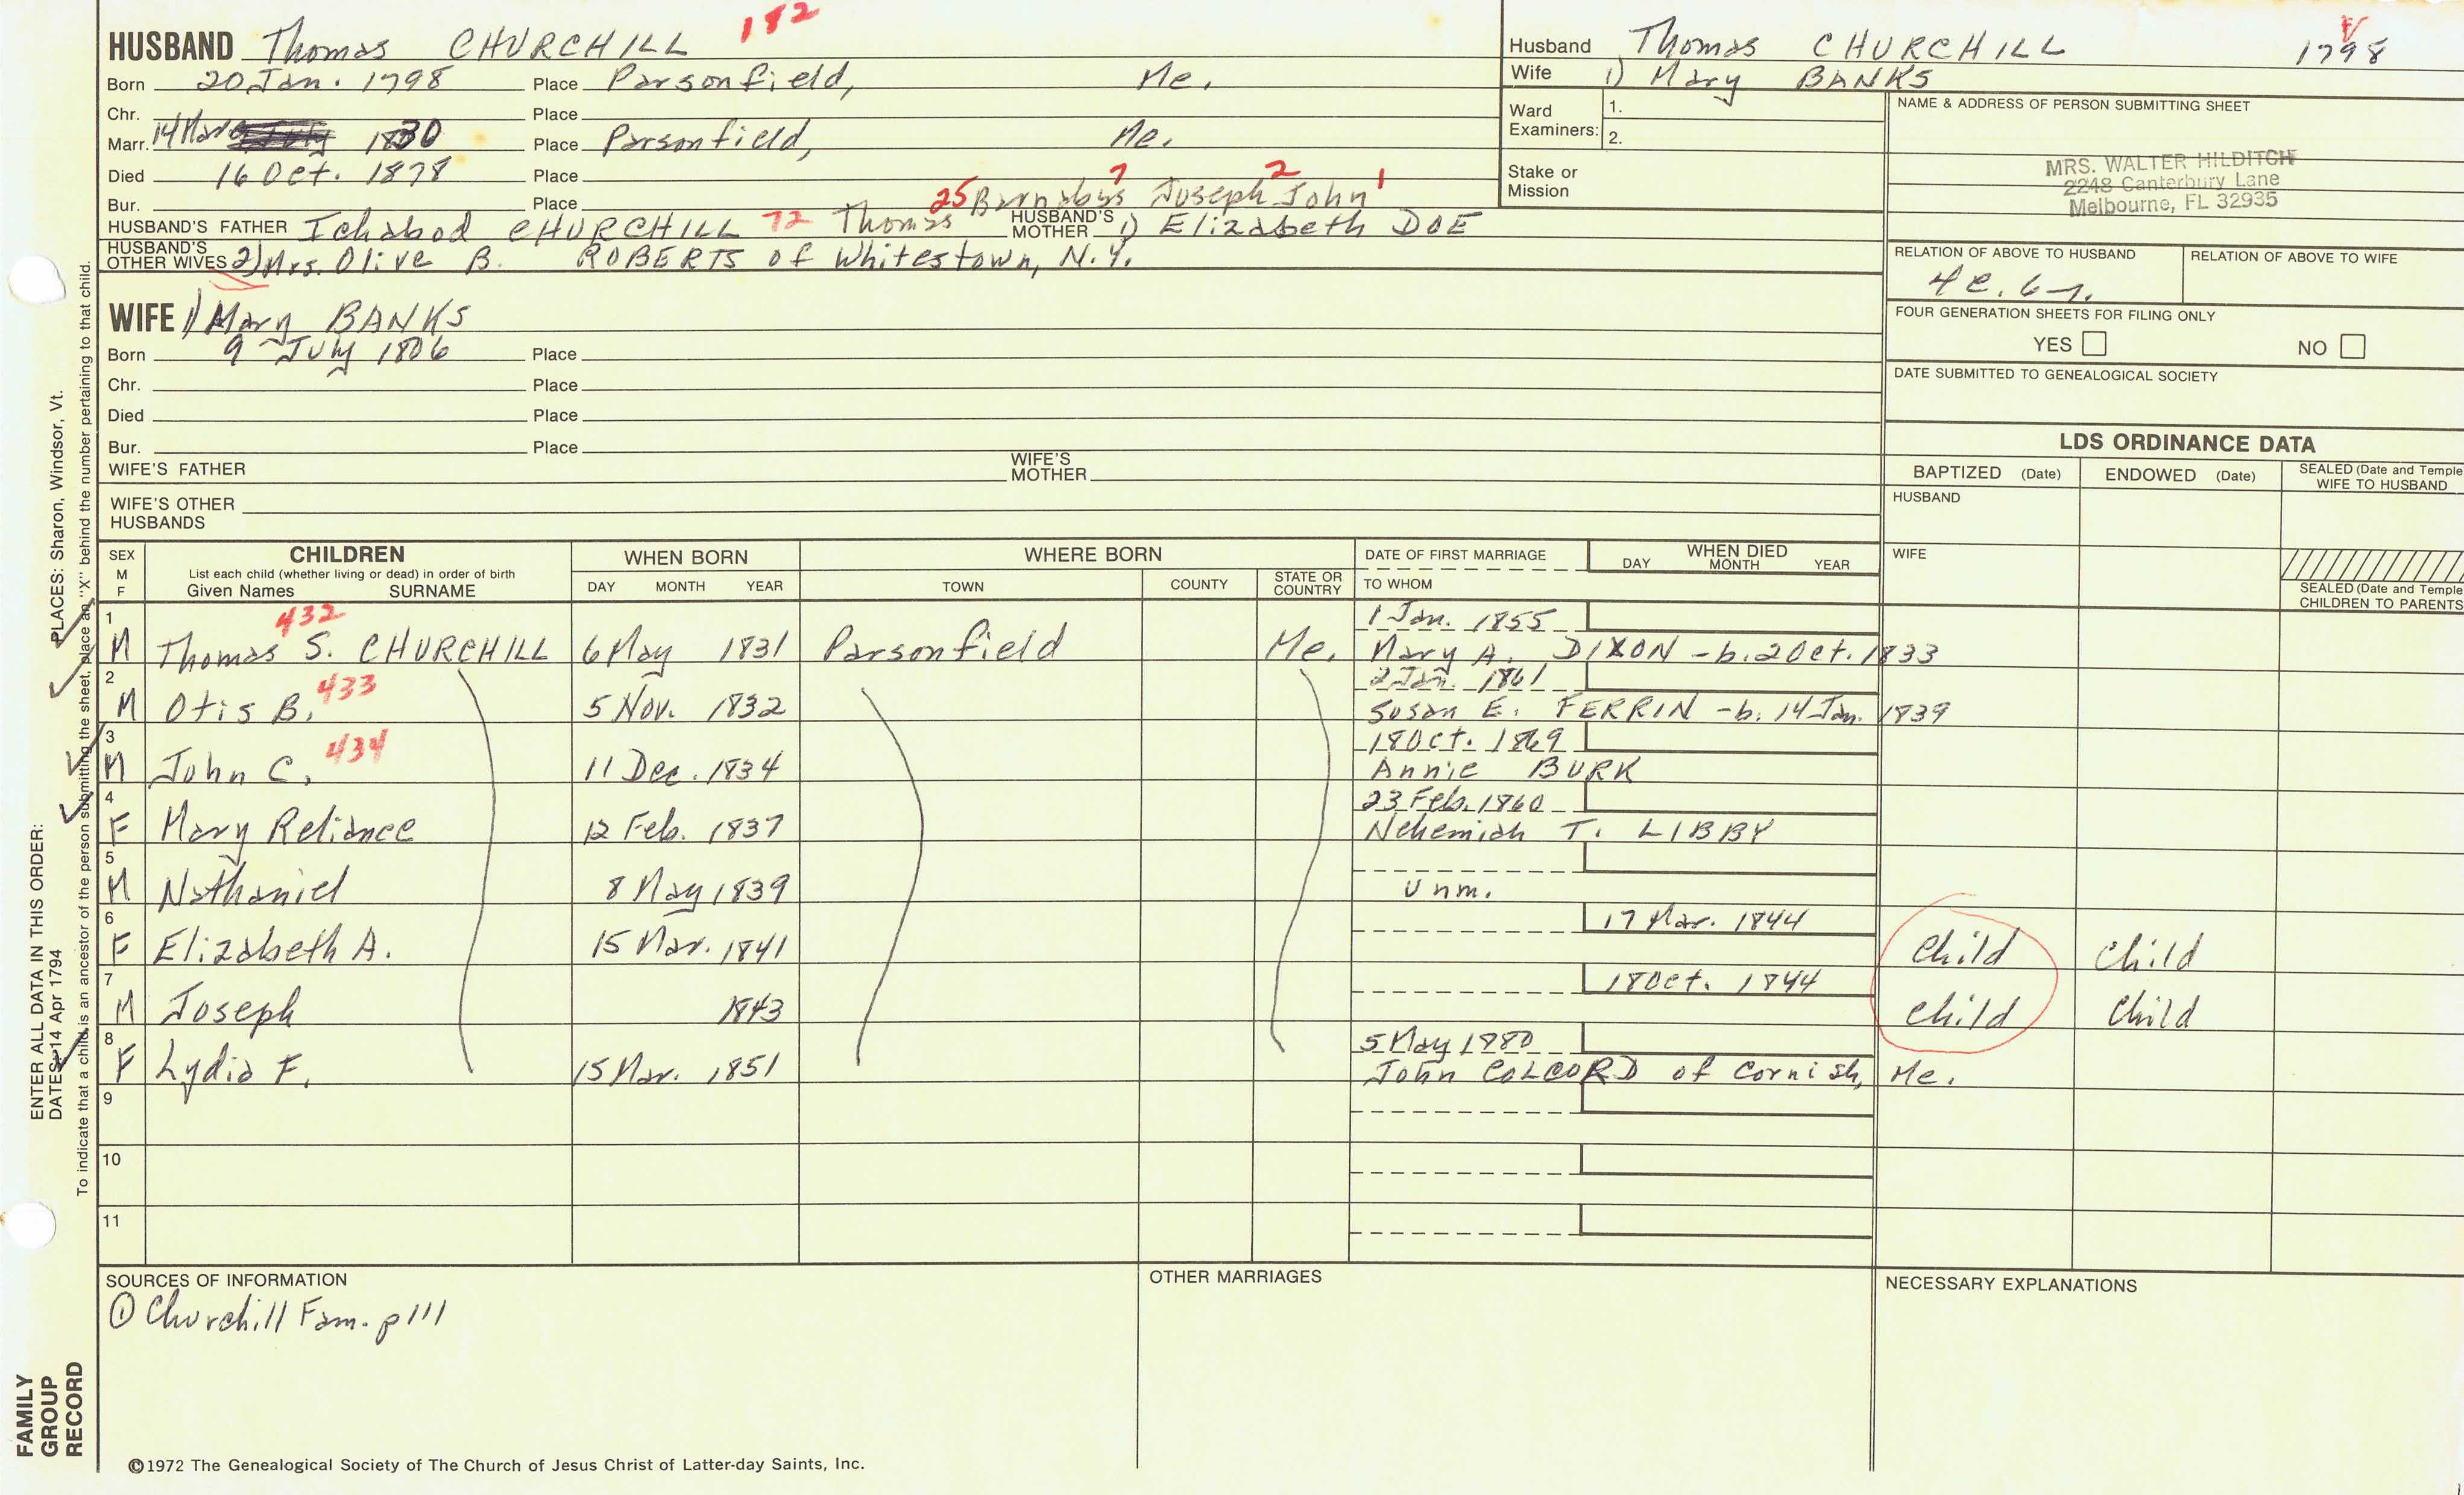 HUSBAND Thomas CHURCHILL 182
Born 20 Jan. 1798 Place Parsonfield, Me.
Chr. Place
Marr. 14 Mar 1830 Place Parsonfield, Me.
Died 16 Oct. 1878 Place
Bur. Place 25 Barnabys 7 Joseph 2 John 1
HUSBAND'S FATHER Ichabod CHURCHILL 72 Thomas HUSBAND'S MOTHER 1) Elizabeth DOE
HUSBAND'S OTHER WIVES 2) Mrs. Olive B. ROBERTS of Whitestown, N.Y.
WIFE 1) Mary BANKS
Born 9 July 1806 Place
Chr. Place
Died Place
Bur. Place
WIFE'S FATHER WIFE'S MOTHER
WIFE'S OTHER HUSBANDS
Husband Thomas CHURCHILL 1798
Wife 1) Mary BANKS
Ward Examiners: 1.
2.
Stake or Mission
NAME & ADDRESS OF PERSON SUBMITTING SHEET
MRS. WALTER HILDITCH
2248 Canterbury Lane
Melbourne, FL 32935
RELATION OF ABOVE TO HUSBAND RELATION OF ABOVE TO WIFE
4c. 6r.
FOUR GENERATION SHEETS FOR FILING ONLY
YES NO
DATE SUBMITTED TO GENEALOGICAL SOCIETY
LDS ORDINANCE DATA
BAPTIZED (Date) ENDOWED (Date) SEALED (Date and Temple WIFE TO HUSBAND
HUSBAND
WIFE
SEALED (Date and Temple CHILDREN TO PARENTS
SEX M F CHILDREN List each child (whether living or dead) in order of birth Given Names SURNAME
WHEN BORN DAY MONTH YEAR
WHERE BORN TOWN COUNTY STATE OR COUNTRY
DATE OF FIRST MARRIAGE TO WHOM
WHEN DIED DAY MONTH YEAR
1 432 1 Jan. 1855
M Thomas S. CHURCHILL 6 May 1831 Parsonfield Me. Mary A. DIXON - b. 2 Oct. 1833
2 433 2 Jan. 1861
M Otis B. 5 Nov. 1832 Susan E. FERRIN - b. 14 Jan. 1839
3 434 18 Oct. 1869
M John C. 11 Dec. 1834 Annie BURK
4 23 Feb. 1860
F Mary Reliance 12 Feb. 1837 Nehemiah T. LIBBY
5
M Nathaniel 8 May 1839 Unm.
6 17 Mar. 1844
F Elizabeth A. 15 Mar. 1841 Child Child
7 18 Oct. 1844
M Joseph 1843 Child Child
8 5 May 1880
F Lydia F. 15 Mar. 1851 John COLCORD of Cornish, Me.
9
10
11
SOURCES OF INFORMATION
① Churchill Fam. p 111
OTHER MARRIAGES
NECESSARY EXPLANATIONS
©1972 The Genealogical Society of The Church of Jesus Christ of Latter-day Saints, Inc.
ENTER ALL DATA IN THIS ORDER:
DATES: 14 Apr 1794 PLACES: Sharon, Windsor, Vt.
To indicate that a child is an ancestor of the person submitting the sheet, place an "X" behind the number pertaining to that child.
FAMILY
GROUP
RECORD